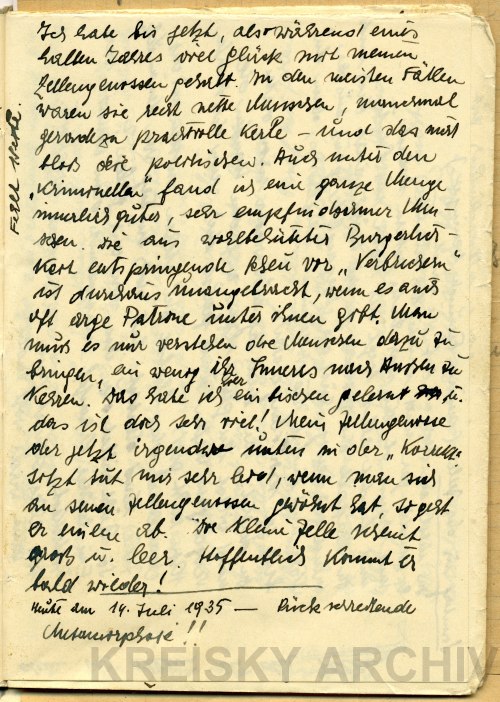 Ich habe bis jetzt, also während eines
halben Jahres viel Glück mit meinen
Zellengenossen gehabt. In den meisten Fällen
waren sie recht nette Menschen, manchmal
geradezu prachtvolle Kerle – und das nicht
bloß die politischen. Auch unter den
„Kriminellen" fand ich eine ganze Menge
innerlich guter, sehr empfindsamer Men-
schen. Die aus wohlbehüteter Bürgerlich-
keit entspringende Scheu vor „Verbrechern"
ist durchaus unangebracht, wenn es auch
oft arge Patrone unter ihnen gibt. Man
muss es nur verstehen die Menschen dazu zu
bringen, ein wenig ihr Inneres nach Außen zu
kehren. Das habe ich hier ein bischen gelernt u.
das ist doch sehr viel! Mein Zellengenosse
der jetzt irgendwo unten in der „Korrekt."
sitzt tut mir sehr leid, wenn man sich
an seinen Zellengenossen gewöhnt hat, so geht
er einem ab. Die kleine Zelle scheint
groß u. leer. Hoffentlich kommt er
bald wieder!
Heute am 14. Juli 1935 — Rückschreitende
Metamorphose!!
Fall
KREISKY ARCHIV